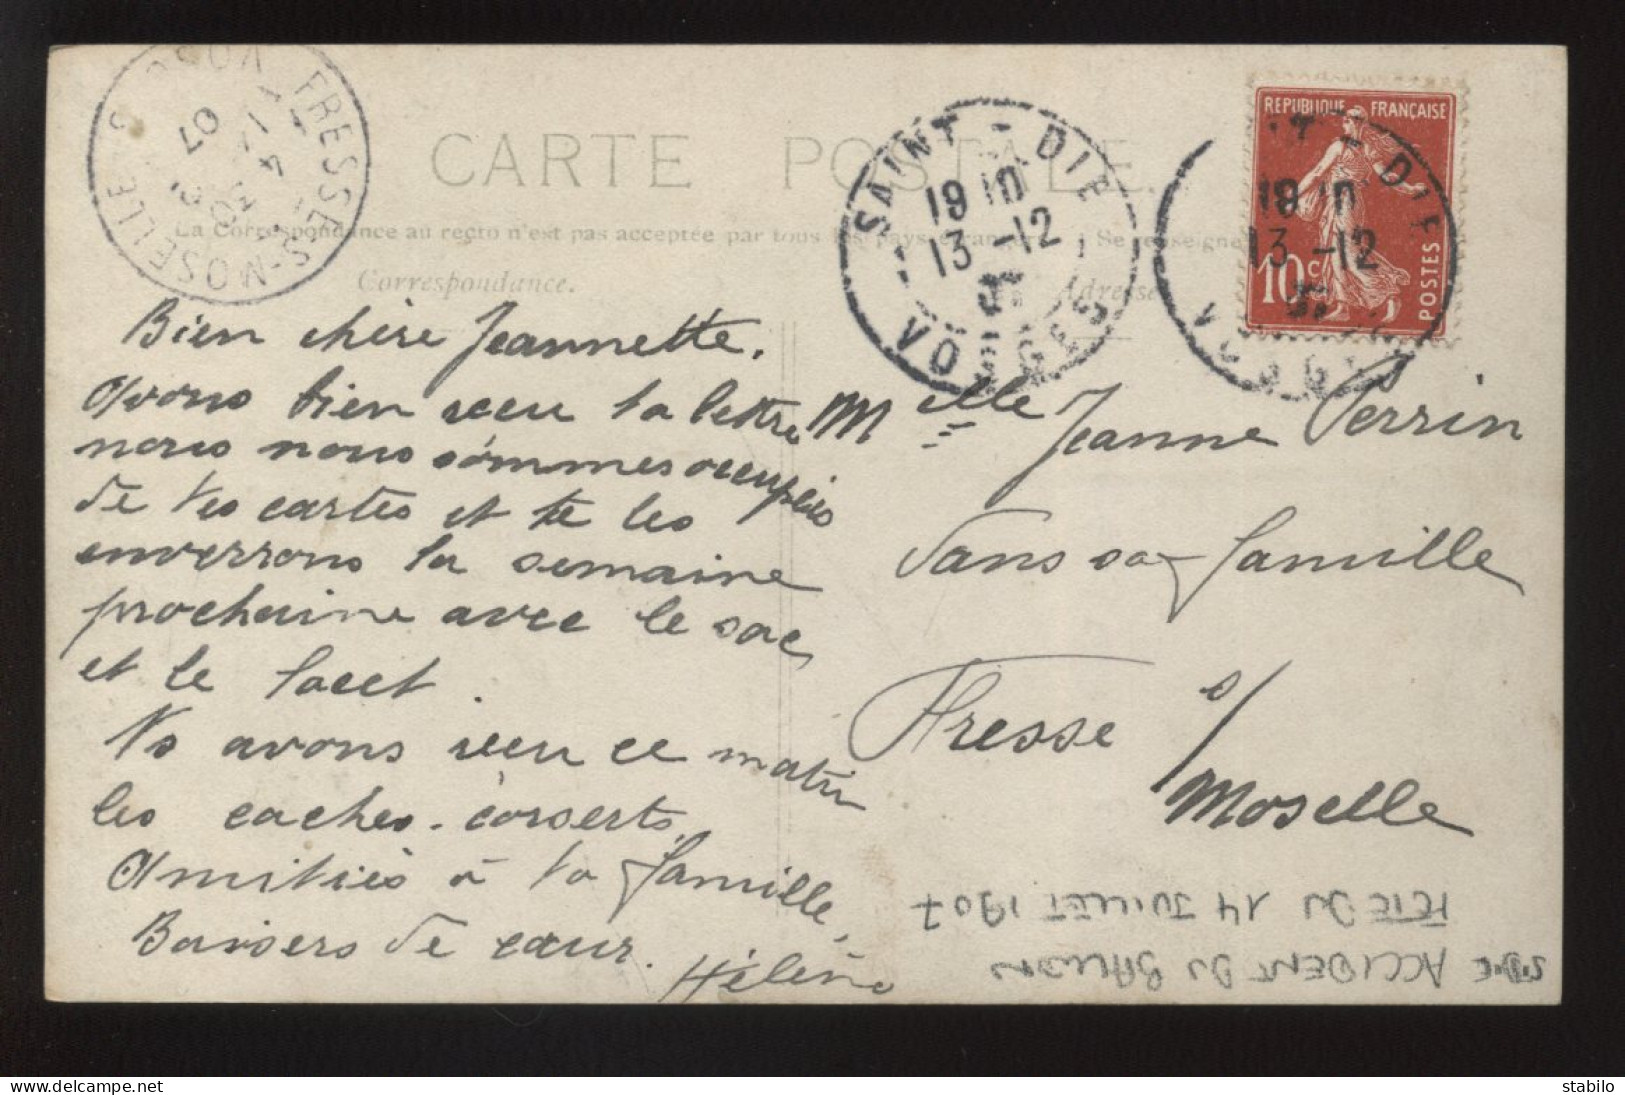 CARTE POSTALE
La Correspondance au recto n'est pas acceptée par tous les pays étrangers. (Se renseigne
Correspondance.
Adresse
FRESSE-S-MOSELLE
VOSGES
07
SAINT-DIE
19 10
13-12
07
VOSGES
REPUBLIQUE FRANÇAISE
10c
POSTES
DIE
19 10
13-12
VOSGES
Bien chère Jeannette.
Avons bien reçu ta lettre
nous nous sommes occupées
de tes cartes et te les
enverrons la semaine
prochaine avec le sac
et le lacet.
Ns avons reçu ce matin
les caches-corsets.
Amitiés à ta famille,
Baisers de cœur.
Hélène
Melle Jeanne Perrin
dans sa famille
Fresse s/
Moselle
St DIE ACCIDENT DU BALLON
FETE DU 14 JUILLET 1907
stabilo